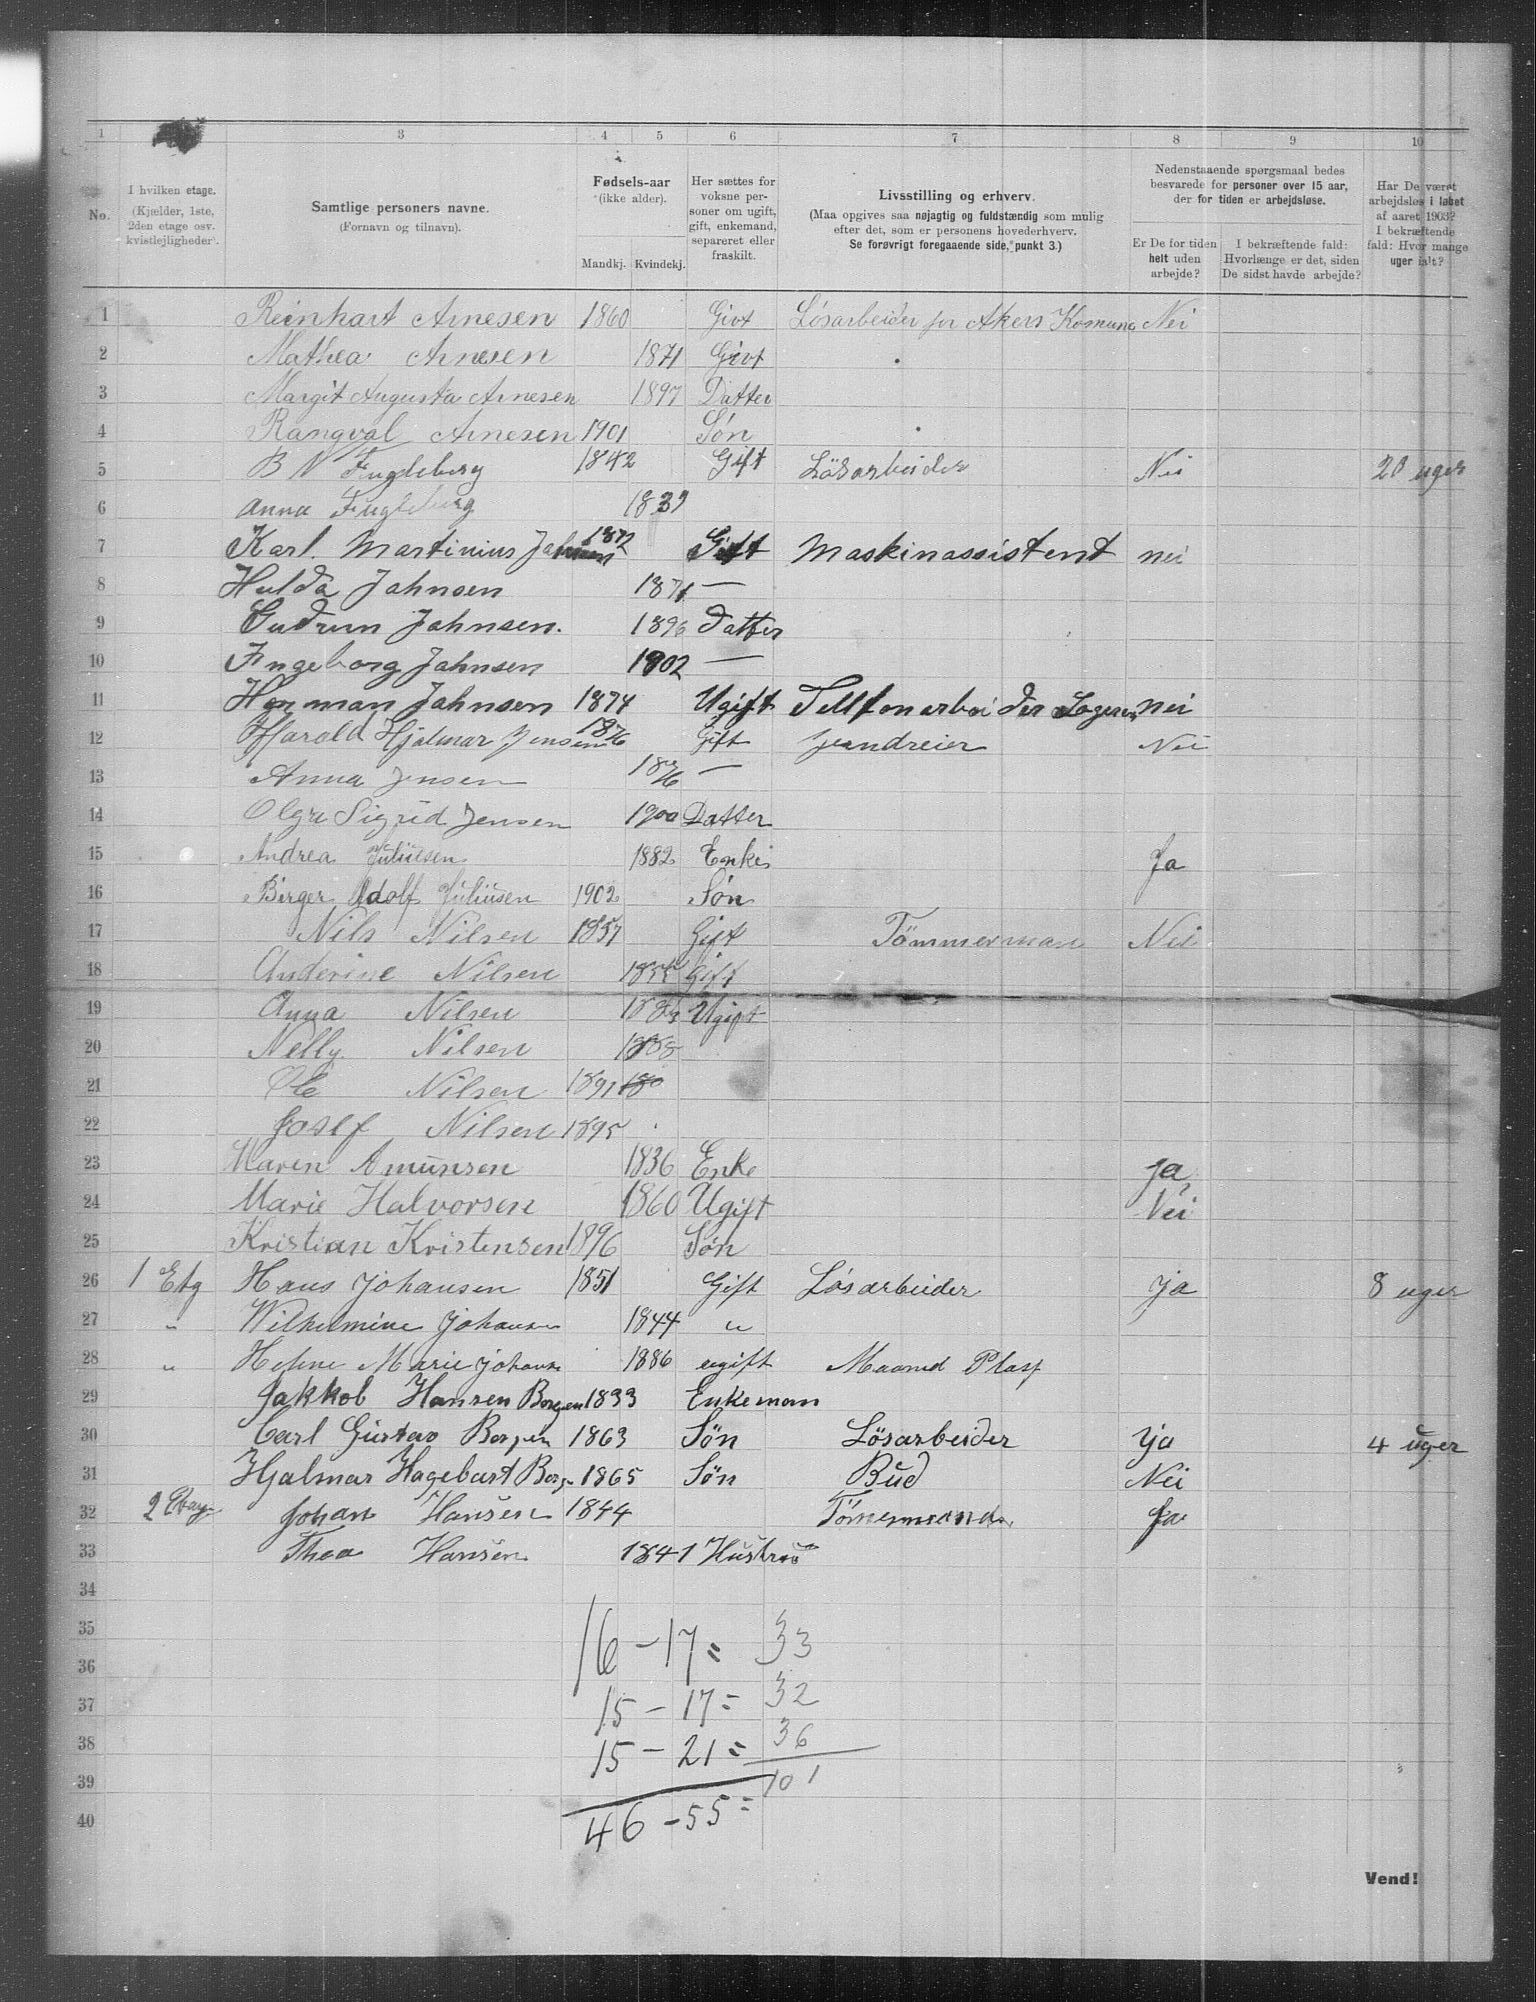 1 3 4 5 6 7 8 9 10
No.
I hvilken etage.
(Kjælder, 1ste, 2den etage osv. kvistlejligheder).
Samtlige personers navne.
(Fornavn og tilnavn).
Fødsels-aar
(ikke alder).
Mandkj. Kvindekj.
Her sættes for voksne personer om ugift, gift, enkemand, separeret eller fraskilt.
Livsstilling og erhverv.
(Maa opgives saa nøjagtig og fuldstændig som mulig efter det, som er personens hovederhverv.
Se forøvrigt foregaaende side, punkt 3.)
Nedenstaaende spørgsmaal bedes besvarede for personer over 15 aar, der for tiden er arbejdsløse.
Er De for tiden helt uden arbejde?
I bekræftende fald: Hvorlænge er det, siden De sidst havde arbejde?
Har De været arbejdsløs i løbet af aaret 1903? I bekræftende fald: Hvor mange uger ialt?
1 Reinhart Arnesen 1860 Givt Løsarbeider for Akers Komune Nei
2 Mathea Arnesen 1871 Givt
3 Margit Augusta Arnesen 1897 Datter
4 Rangval Arnesen 1901 Søn
5 B N Fugleberg 1842 Gift Løsarbeider Nei 20 uger
6 Anna Fugleberg 1839
7 Karl. Martinius Jahnsen 1872 Gift Maskinassistent nei
8 Hulda Jahnsen 1871 —
9 Gudrun Jahnsen. 1896 Datter
10 Ingeborg Jahnsen 1902 —
11 Herman Jahnsen 1874 Ugift Tellfonarbeider Logerer nei
12 Harold Hjalmar Jensen 1876 Gift Jerndreier Nei
13 Anna Jensen 1876 —
14 Olga Sigrid Jensen 1900 Datter
15 Andrea Juliusen 1882 Enke Ja
16 Birger Adolf Juliusen 1902 Søn
17 Nils Nilsen 1857 Gift Tömmerman Nei
18 Anderine Nilsen 1855 Gift
19 Anna Nilsen Ugift
20 Nelly Nilsen 1888
21 Ole Nilsen 1891 18
22 Josef Nilsen 1895
23 Maren Amunsen 1836 Enke ja
24 Marie Halvorsen 1860 Ugift Nei
25 Kristian Kristensen 1896 Søn
26 1 Etg Hans Johansen 1851 Gift Løsarbeider ja 8 uger
27 " Wilhelmine Johansen 1844 "
28 " Helene Marie Johansen 1886 ugift Maaned Plass
29 Jakkob Hansen Borgen 1833 Enkeman
30 Carl Gustav Borgen 1863 Søn Lösarbeider ja 4 uger
31 Hjalmar Hagebart Borg 1865 Søn Bud Nei
32 2 Etage Johan Hansen 1844 Tömermand Ja
33 Thea Hansen 1841 Hustru
34
35
36
37
38
39
40
16 – 17 = 33
15 – 17 = 32
15 – 21 = 36
46 – 55 = 101
Vend!